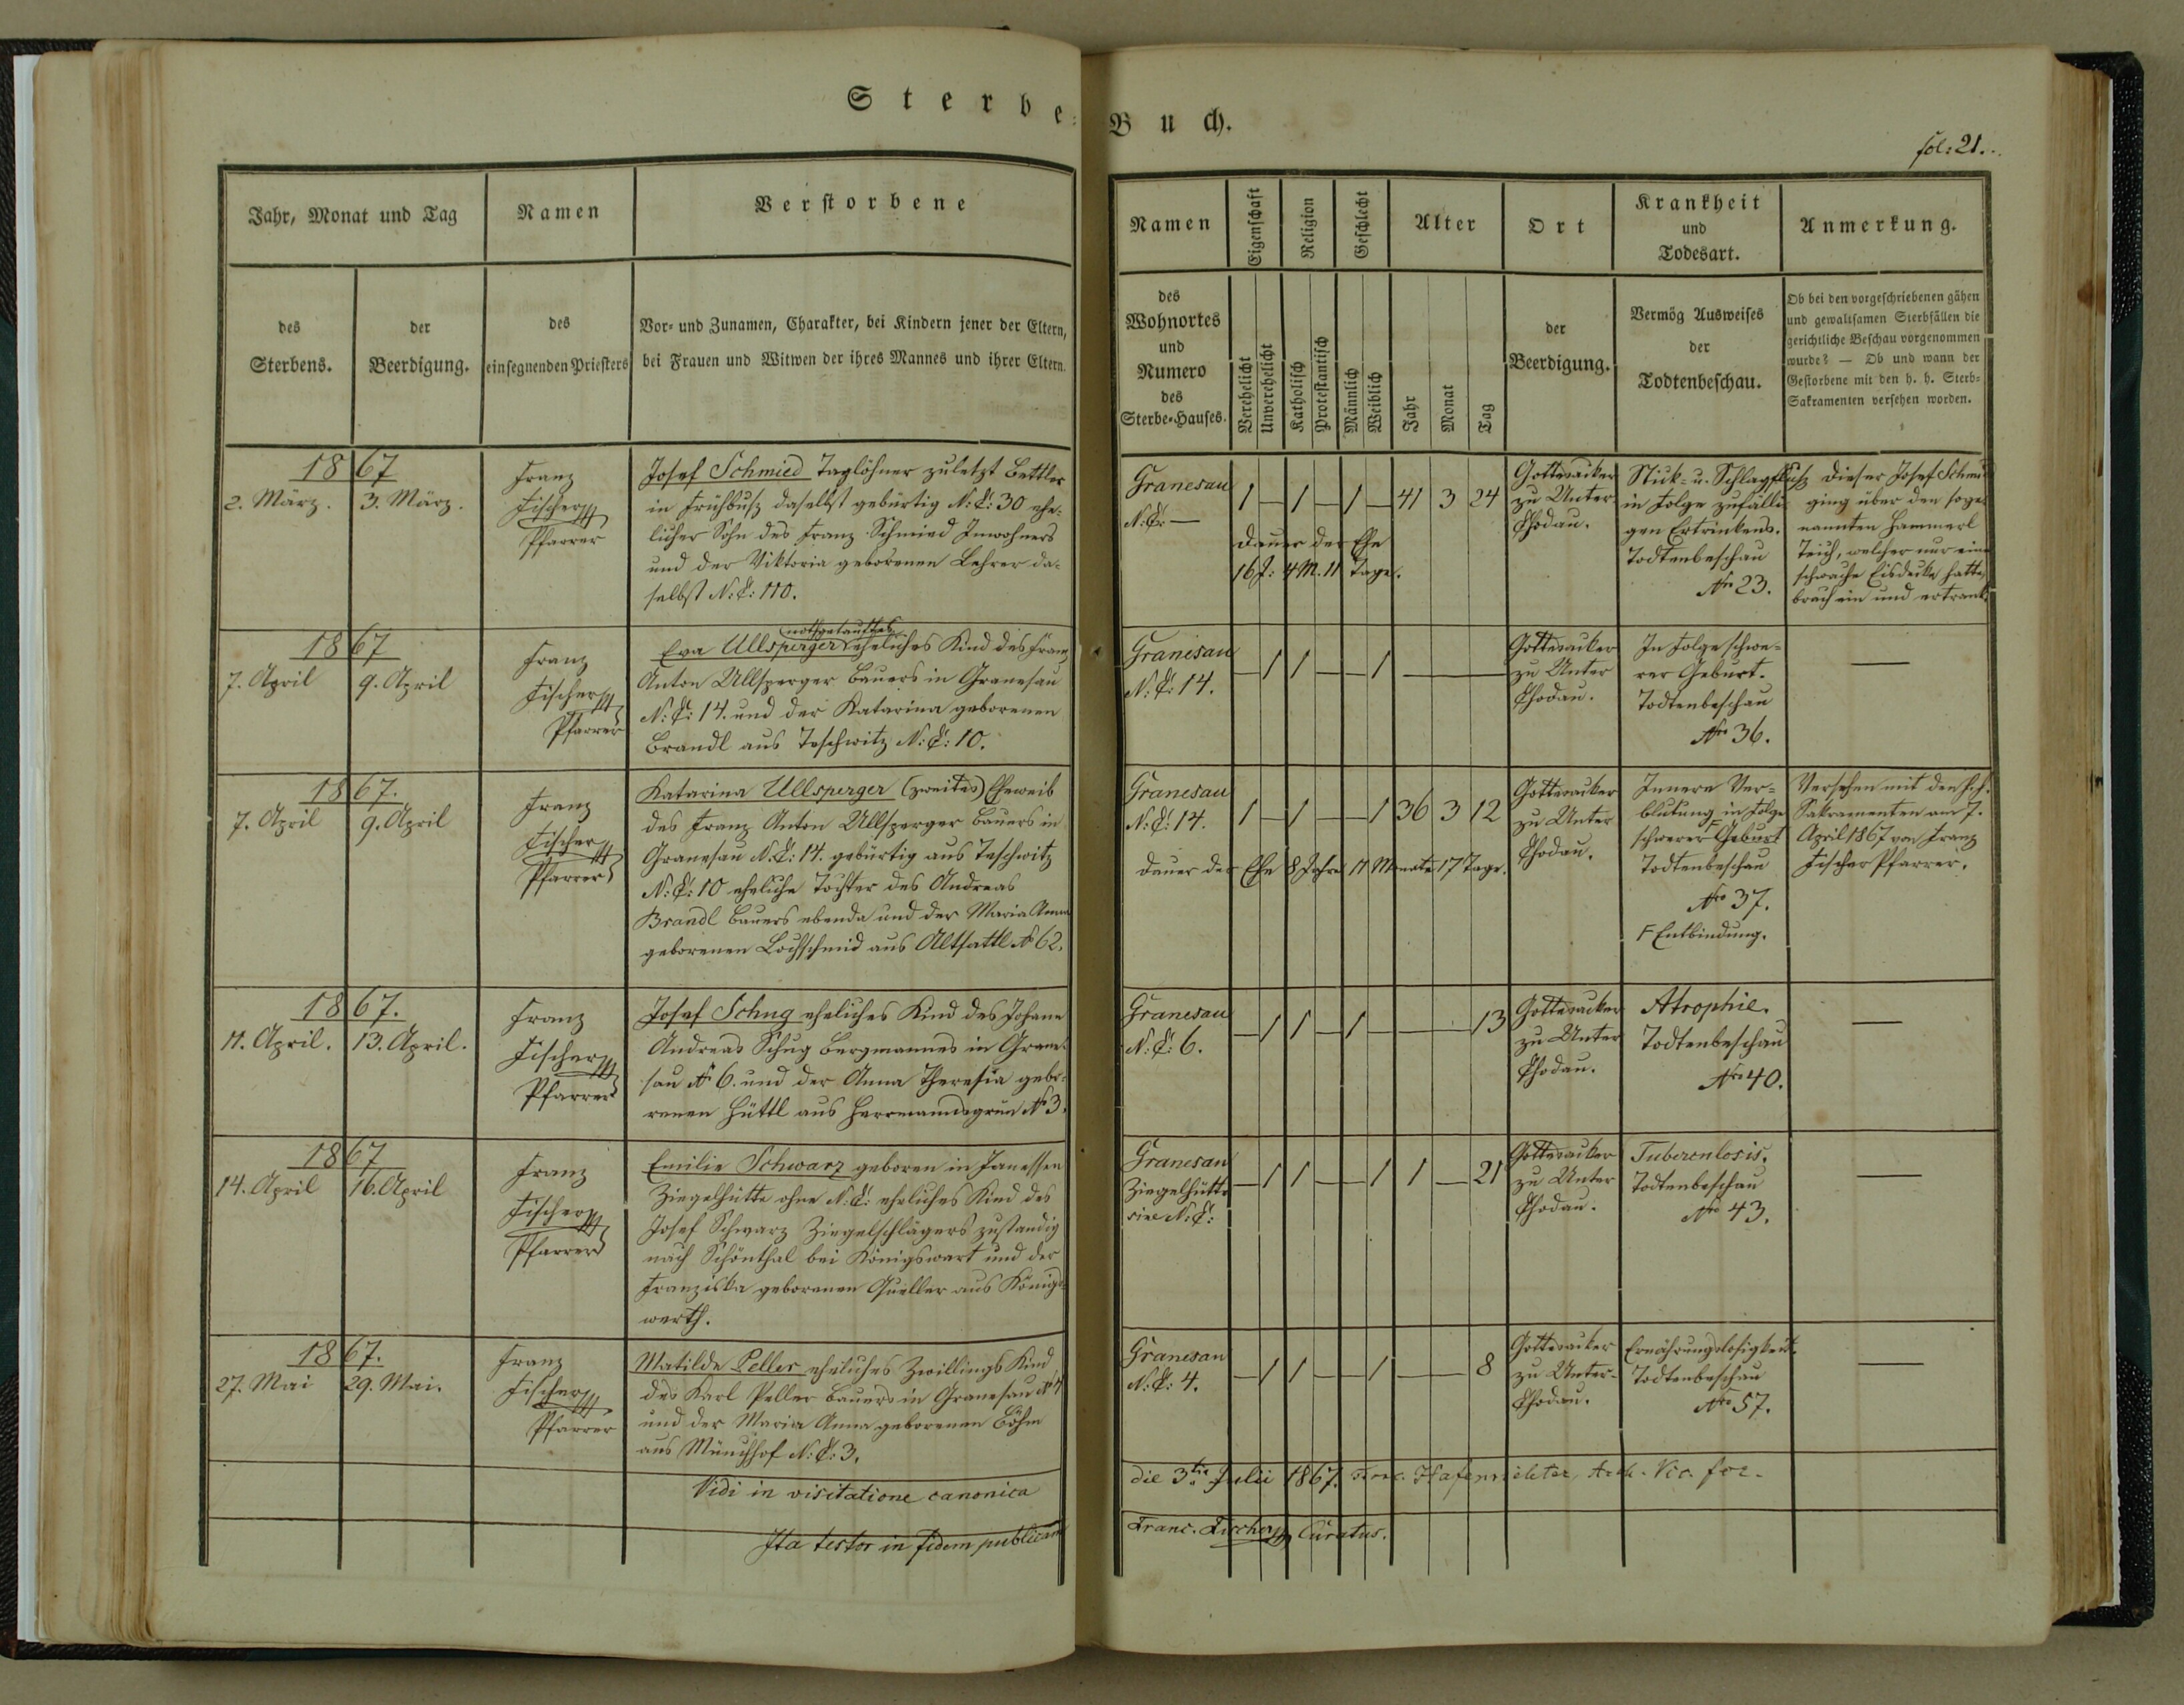 Sterbe-Buch.
fol: 21.
Jahr, Monat und Tag
Namen
Verstorbene
des
Sterbens.
der
Beerdigung.
des
einsegnenden Priesters
Vor- und Zunamen, Charakter, bei Kindern jener der Eltern,
bei Frauen und Witwen der ihres Mannes und ihrer Eltern.
Namen
Eigenschaft
Religion
Geschlecht
Alter
Ort
Krankheit
und
Todesart.
Anmerkung.
des
Wohnortes
und
Numero
des
Sterbe-Hauses.
Verehelicht
Unverehelicht
Katholisch
Protestantisch
Männlich
Weiblich
Jahr
Monat
Tag
der
Beerdigung.
Vermög Ausweises
der
Todtenbeschau.
Ob bei den vorgeschriebenen gähen
und gewaltsamen Sterbfällen die
gerichtliche Beschau vorgenommen
wurde? — Ob und wann der
Gestorbene mit den h. h. Sterb-
Sakramenten versehen worden.
1867
2. März. 3. März.
Franz
Fischer
Pfarrer
Josef Schmied Taglöhner zuletzt Bettler
in Frühbuß daselbst gebürtig N: C: 30 ehe-
licher Sohn des Franz Schmied Inwohners
und der Viktoria geborenen Lehrer da-
selbst N: C: 110.
Granesau
N: C: —
1 — 1 — 1 — 41 3 24
Dauer der Ehe
16 J: 4 M. 11 Tage.
Gottesacker
zu Unter
Chodau.
Stick- u. Schlagfluß
in Folge zufälli-
gen Ertrinkens.
Todtenbeschau
Nro 23.
Dieser Josef Schmi
ging über den soge-
nannten Hammerl
Teich, welcher nur eine
schwache Eisdecke hatte,
brach ein und ertrank.
1867
7. April 9. April
Franz
Fischer
Pfarrer
nothgetauftes
Eva Ullsperger eheliches Kind des Franz
Anton Ullsperger Bauers in Granesau
N: C: 14. und der Katarina geborenen
Brandl aus Teschwitz N: C: 10.
Granesau
N: C: 14.
— 1 1 — — 1 — — —
Gottesacker
zu Unter
Chodau.
In Folge schwe-
rer Geburt.
Todtenbeschau
Nro 36.
—
1867.
7. April 9. April
Franz
Fischer
Pfarrer
Katarina Ullsperger (zweites) Eheweib
des Franz Anton Ullsperger Bauers in
Granesau N: C: 14. gebürtig aus Teschwitz
N: C: 10 eheliche Tochter des Andreas
Brandl Bauers ebenda und der Maria Anna
geborenen Lochschmid aus Altsattl No 62.
Granesau
N: C: 14.
1 — 1 — — 1 36 3 12
Dauer der Ehe 8 Jahre 11 Monate 17 Tage.
Gottesacker
zu Unter
Chodau.
Innere Ver-
blutung in Folge
schwerer F Geburt
Todtenbeschau
Nro 37.
F Entbindung.
Versehen mit den h. h.
Sakramenten am 7.
April 1867 von Franz
Fischer Pfarrer.
1867.
11. April. 13. April.
Franz
Fischer
Pfarrer
Josef Schug eheliches Kind des Johann
Andreas Schug Bergmannes in Grane-
sau No 6. und der Anna Theresia gebo-
renen Hüttl aus Herrmannsgrün No 3.
Granesau
N: C: 6.
— 1 1 — 1 — — — 13
Gottesacker
zu Unter
Chodau.
Atrophie.
Todtenbeschau
Nro 40.
—
1867
14. April 16. April
Franz
Fischer
Pfarrer
Emilie Schwarz geboren in Janessen
Ziegelhütte ohne N: C: eheliches Kind des
Josef Schwarz Ziegelschlägers zuständig
nach Schönthal bei Königswart und der
Franziska geborenen Queller aus Königs-
werth.
Granesau
Ziegelhütte
sine N: C:
— 1 1 — — 1 1 — 21
Gottesacker
zu Unter
Chodau.
Tuberculosis.
Todtenbeschau
Nro 43.
—
1867.
27. Mai 29. Mai.
Franz
Fischer
Pfarrer
Matilde Peller eheliches Zwillings Kind
des Karl Peller Bauers in Granesau No 4
und der Maria Anna geborenen Böhm
aus Münchhof N: C: 3.
Granesau
N: C: 4.
— 1 1 — — 1 — — 8
Gottesacker
zu Unter-
Chodau.
Ernährungslosigkeit.
Todtenbeschau
Nro 57.
—
Vidi in visitatione canonica die 3tia Julii 1867. Franc. Hafenrichter, Arch. Vic. for.
Ita testor in fidem publicam Franc. Fischer Curatus.